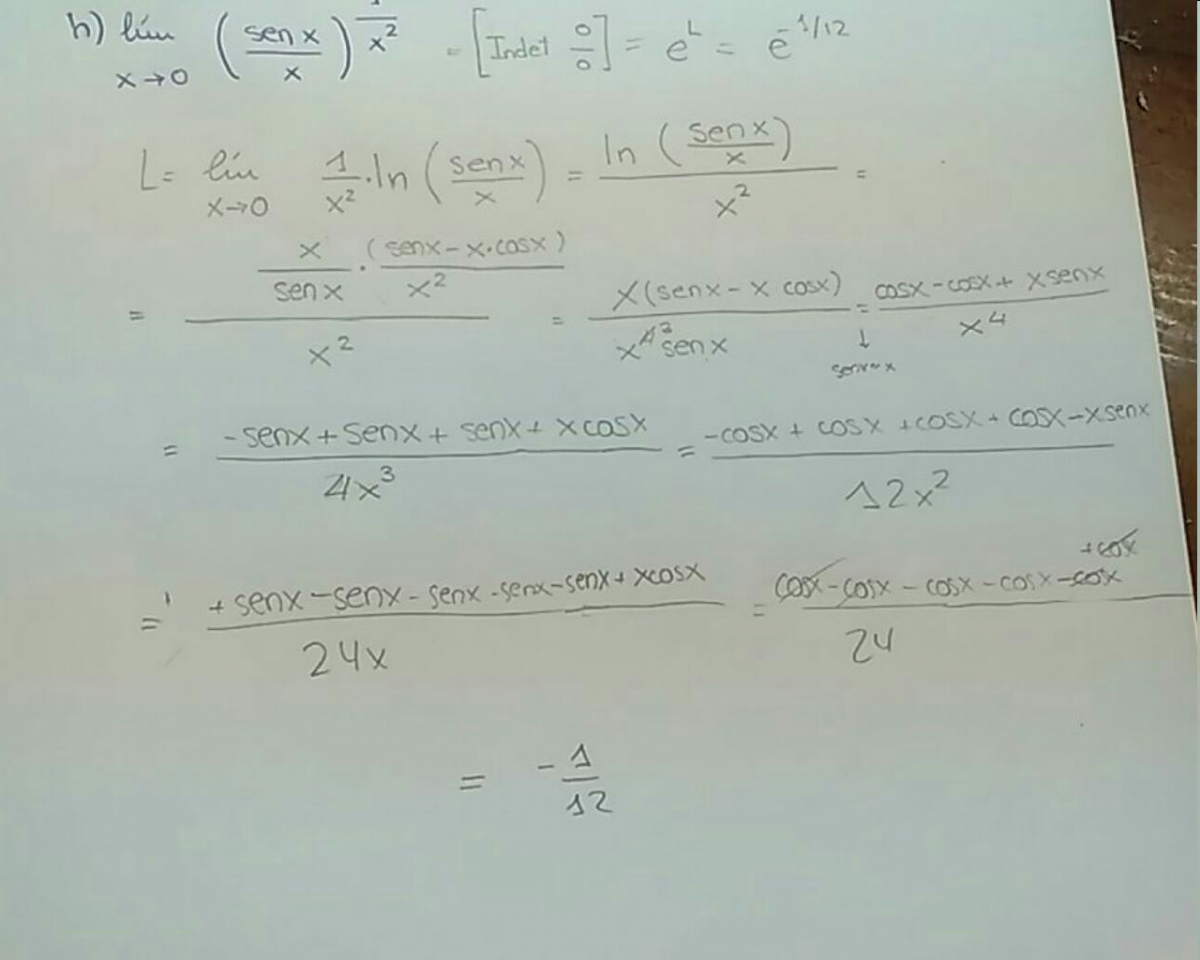 h) lím x→0 (sen x / x)^(1/x²) = [Indet 0/0] = e^L = e^(-1/12)
L = lím x→0 1/x² · ln (sen x / x) = ln (sen x / x) / x² =
= (x / sen x · (senx - x·cosx) / x²) / x² = x(senx - x cosx) / x^4 3 senx = ↓ senx~x cosx - cosx + x senx / x^4
= -senx + senx + senx + xcosx / 4x³ = -cosx + cosx + cosx + cosx - xsenx / 12x²
= +senx - senx - senx - senx - senx + xcosx / 24x = cosx - cosx - cosx - cosx - cosx + cosx / 24
= - 1/12